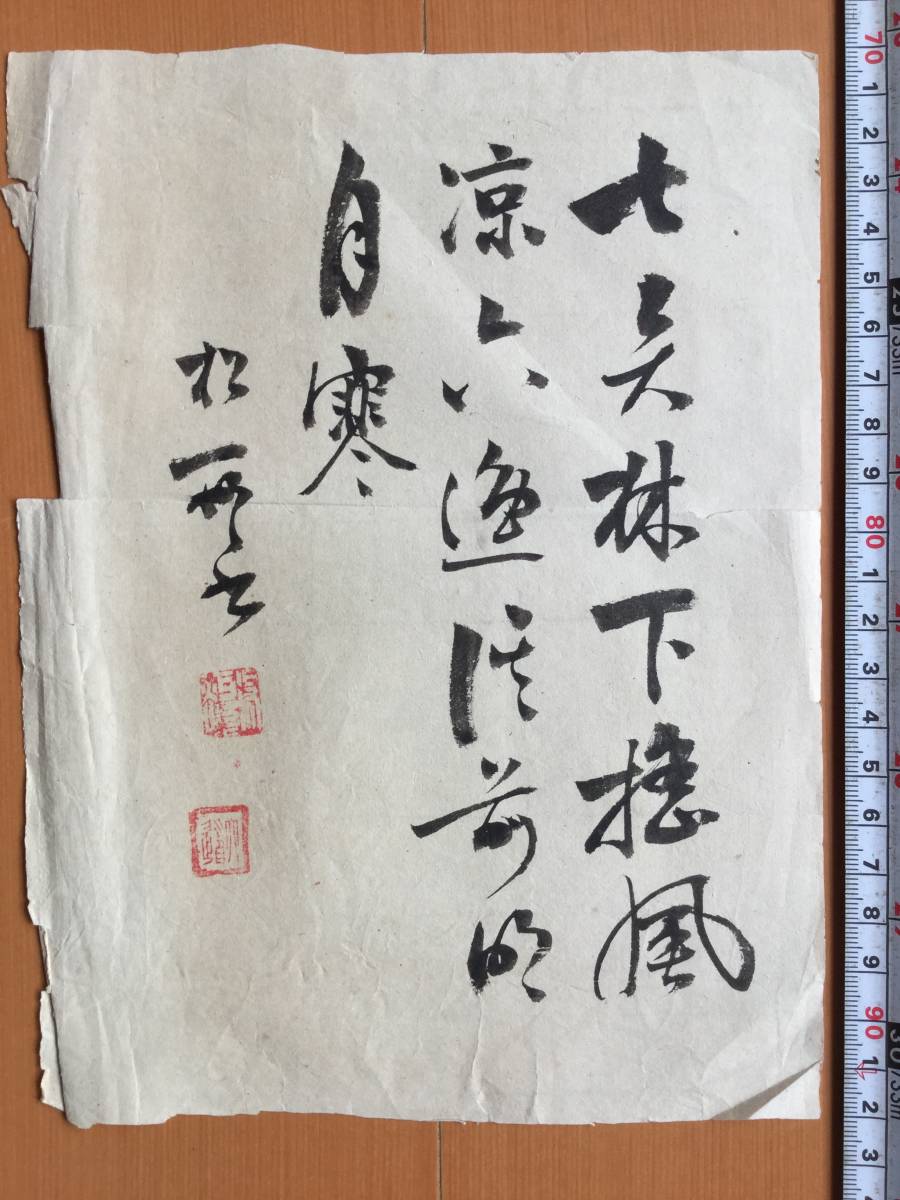 七賢林下搖風
涼六逸溪前明
月寒
松書
70
1
2
3
4
5
6
7
8
9
80
1
2
3
4
5
6
7
8
9
90
1
2
3